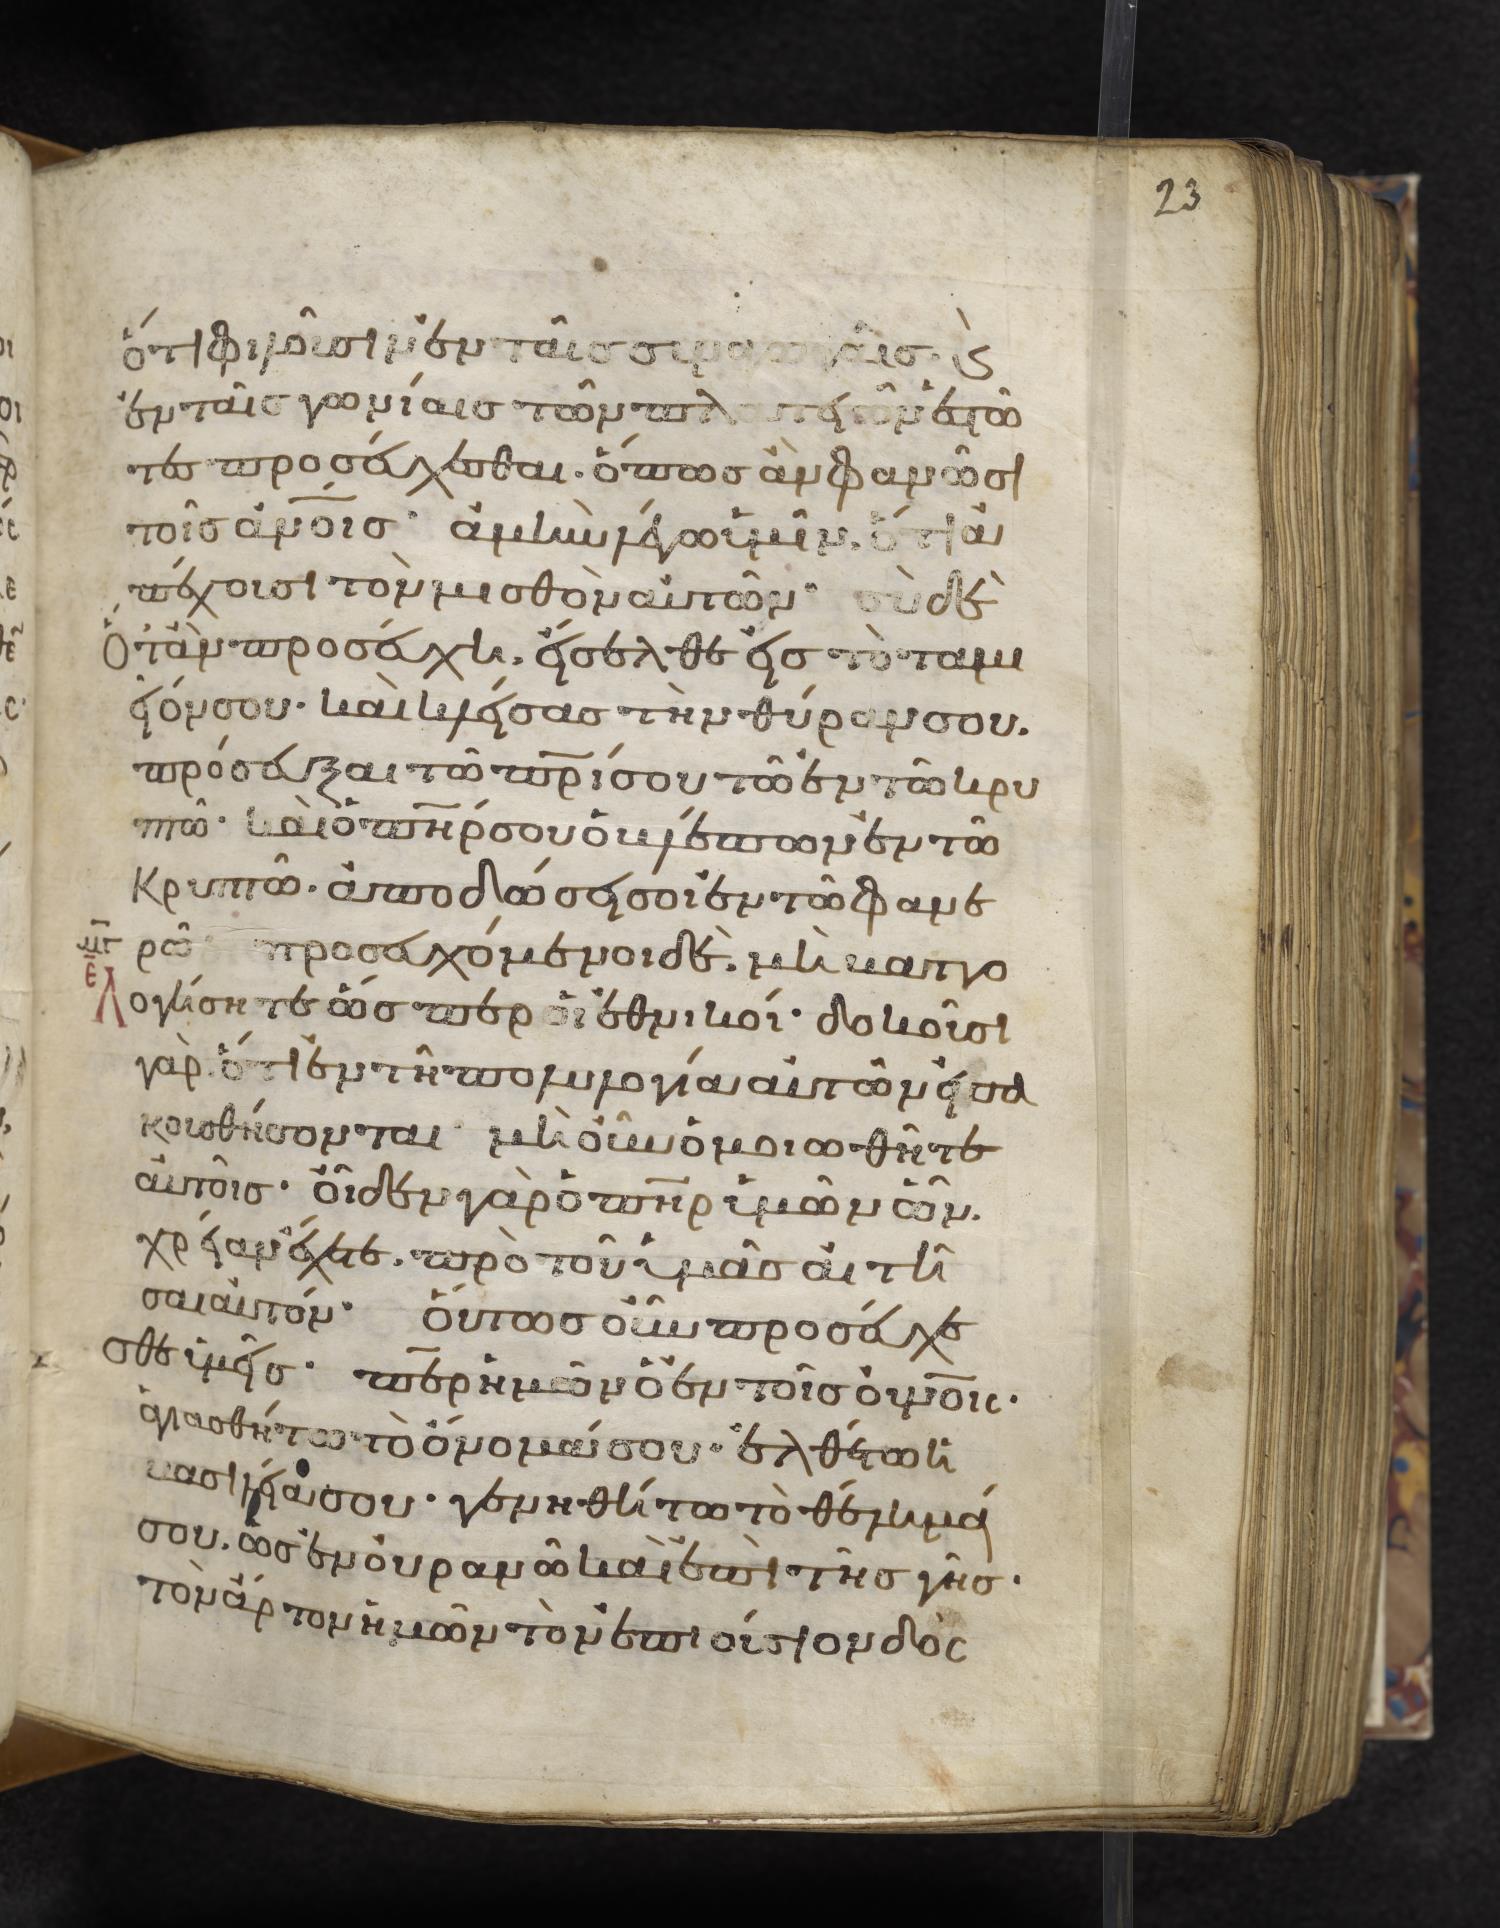 23
ὅτι φιλοῦσιν ἐν ταῖς συναγωγαῖς· ϗ
ἐν ταῖς γωνίαις τῶν πλατειῶν ἑστῶ
τε προσεύχεσθαι· ὅπως ἂν φανῶσι
τοῖς ἀν̅οις· ἀμὴν λέγω ὑμῖν, ὅτι ἀ
πέχουσι τὸν μισθὸν αὐτῶν· σὺ δὲ
Ὅταν προσεύχη, εἴσελθε εἰς τὸ ταμι
εῖόν σου· καὶ κλείσας τὴν θύραν σου.
πρόσευξαι τῶ π̅ρ̅ί σου τῶ ἐν τῶ κρυ
πτῶ· καὶ ὁ π̅η̅ρ σου ὁ βλέπων ἐν τῶ
Κρυπτῶ· ἀποδώσει σοι ἐν τῶ φανε
ρῶ προσευχόμενοι δὲ, μὴ βαττο
λογήσητε ὥσπερ οἱ ἐθνικοί· δοκοῦσι
γὰρ ὅτι ἐν τῆ πολυλογία αὐτῶν εἰσα
κουσθήσονται μὴ οὖν ὁμοιωθῆτε
αὐτοῖς· οἶδεν γὰρ ὁ π̅η̅ρ ὑμῶν ὧν.
χρείαν ἔχετε. πρὸ τοῦ ὑμᾶς αἰτῆ
σαι αὐτόν· οὕτως οὖν προσεύχε
σθε ὑμεῖς· π̅ε̅ρ ἡμῶν ὁ ἐν τοῖς οὐν̅οις·
ἁγιασθήτω τὸ ὄνομά σου· ἐλθέτω ἡ
βασιλεία σου· γενηθήτω τὸ θέλημά
σου. ὡς ἐν οὐρανῶ καὶ ἐπὶ τῆς γῆς·
τὸν ἄρτον ἡμῶν τὸν ἐπιούσιον δὸς